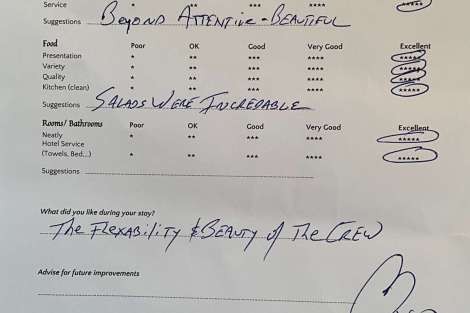 Service * ** *** **** *****
Suggestions BEYOND ATTENTIVE - BEAUTIFUL
Food Poor OK Good Very Good Excellent
Presentation * ** *** **** *****
Variety * ** *** **** *****
Quality * ** *** **** *****
Kitchen (clean) * ** *** **** *****
Suggestions SALADS WERE INCREDABLE
Rooms/ Bathrooms Poor OK Good Very Good Excellent
Neatly * ** *** **** *****
Hotel Service
(Towels, Bed...) * ** *** **** *****
Suggestions
What did you like during your stay?
The FLEXABILITY & BEAUTY of The CREW
Advise for future improvements